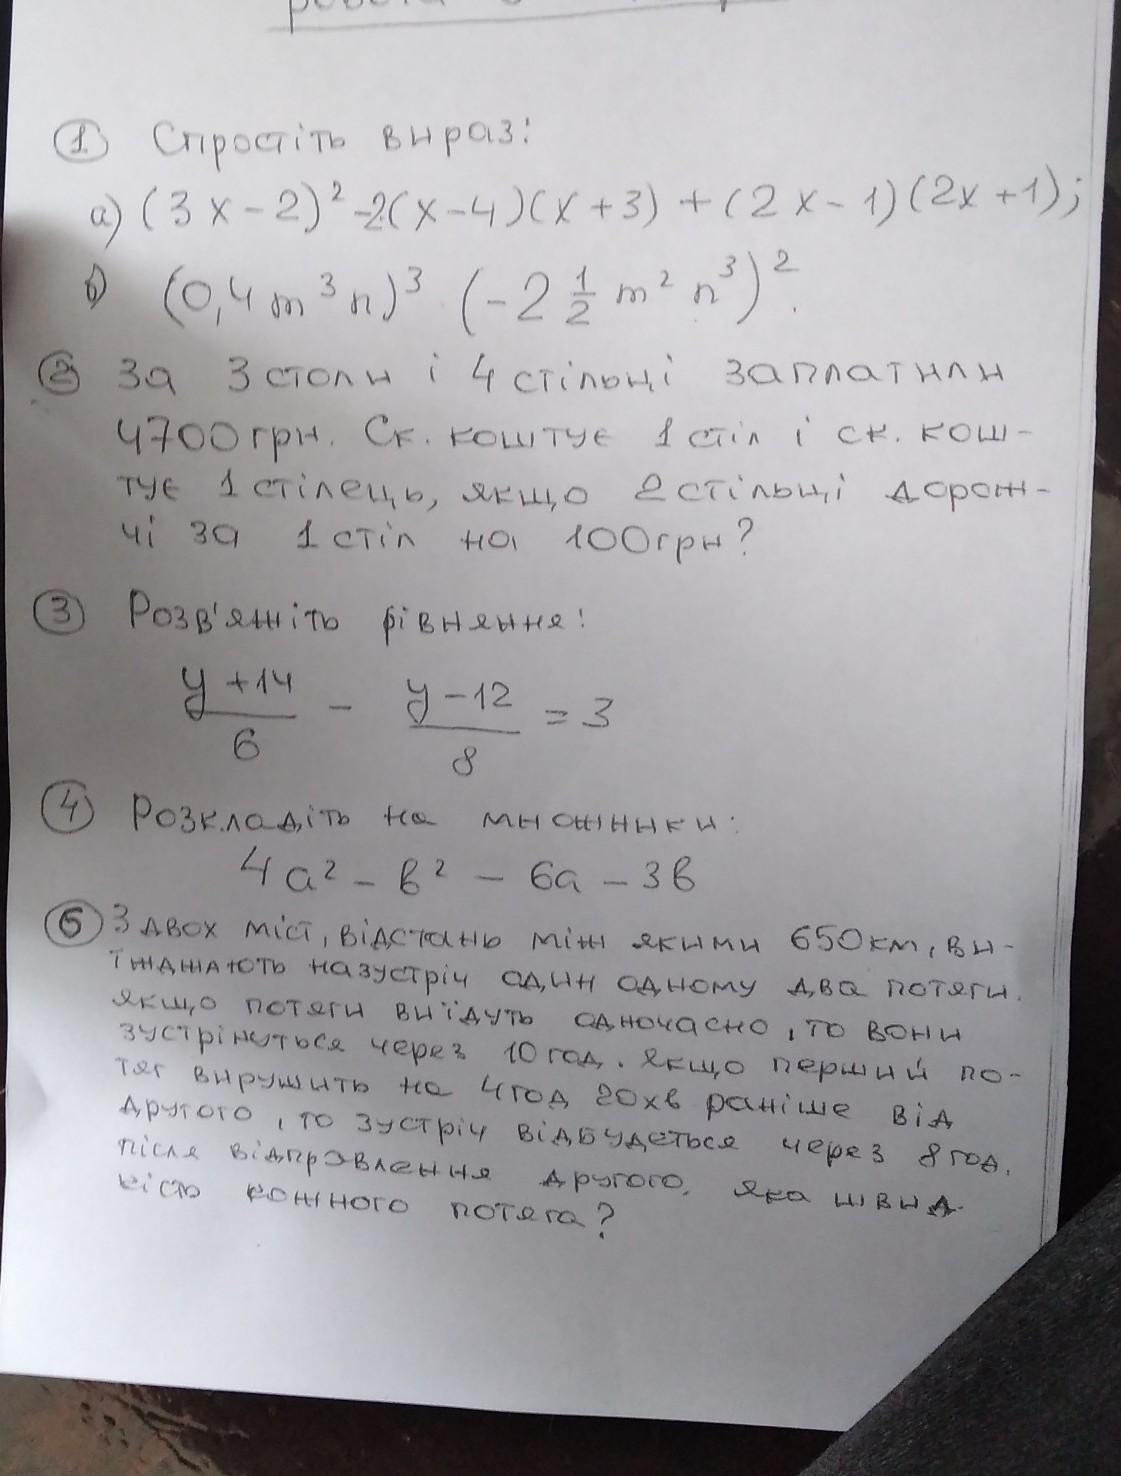 ① Спростіть вираз:
а) (3x-2)² -2(x-4)(x+3) + (2x-1)(2x+1);
б) (0,4m³n)³ · (-2 1/2 m² n³)².
② За 3 столи і 4 стільці заплатили
4700грн. Ск. коштує 1 стіл і ск. кош-
тує 1 стілець, якщо 2 стільці дорож-
чі за 1 стіл на 100грн?
③ Розв'яжіть рівняння:
(y+14)/6 - (y-12)/8 = 3
④ Розкладіть на множники:
4a² - b² - 6a - 3b
⑤ З двох міст, відстань між якими 650км, ви-
їжджають назустріч один одному два потяги.
якщо потяги виїдуть одночасно, то вони
зустрінуться через 10год. якщо перший по-
тяг вирушить на 4год 20хв раніше від
другого, то зустріч відбудеться через 8год.
після відправлення другого. яка швид-
кість кожного потяга?